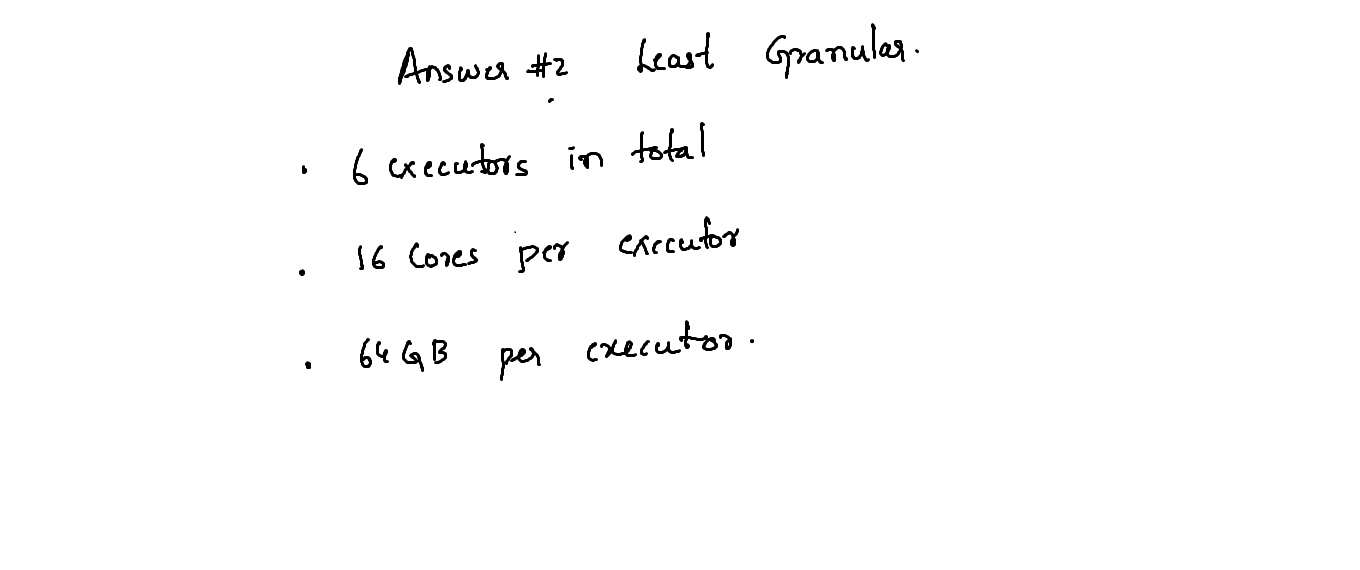 Answer #2 Least Granular.
. 6 executors in total
. 16 Cores per executor
. 64 GB per executor.